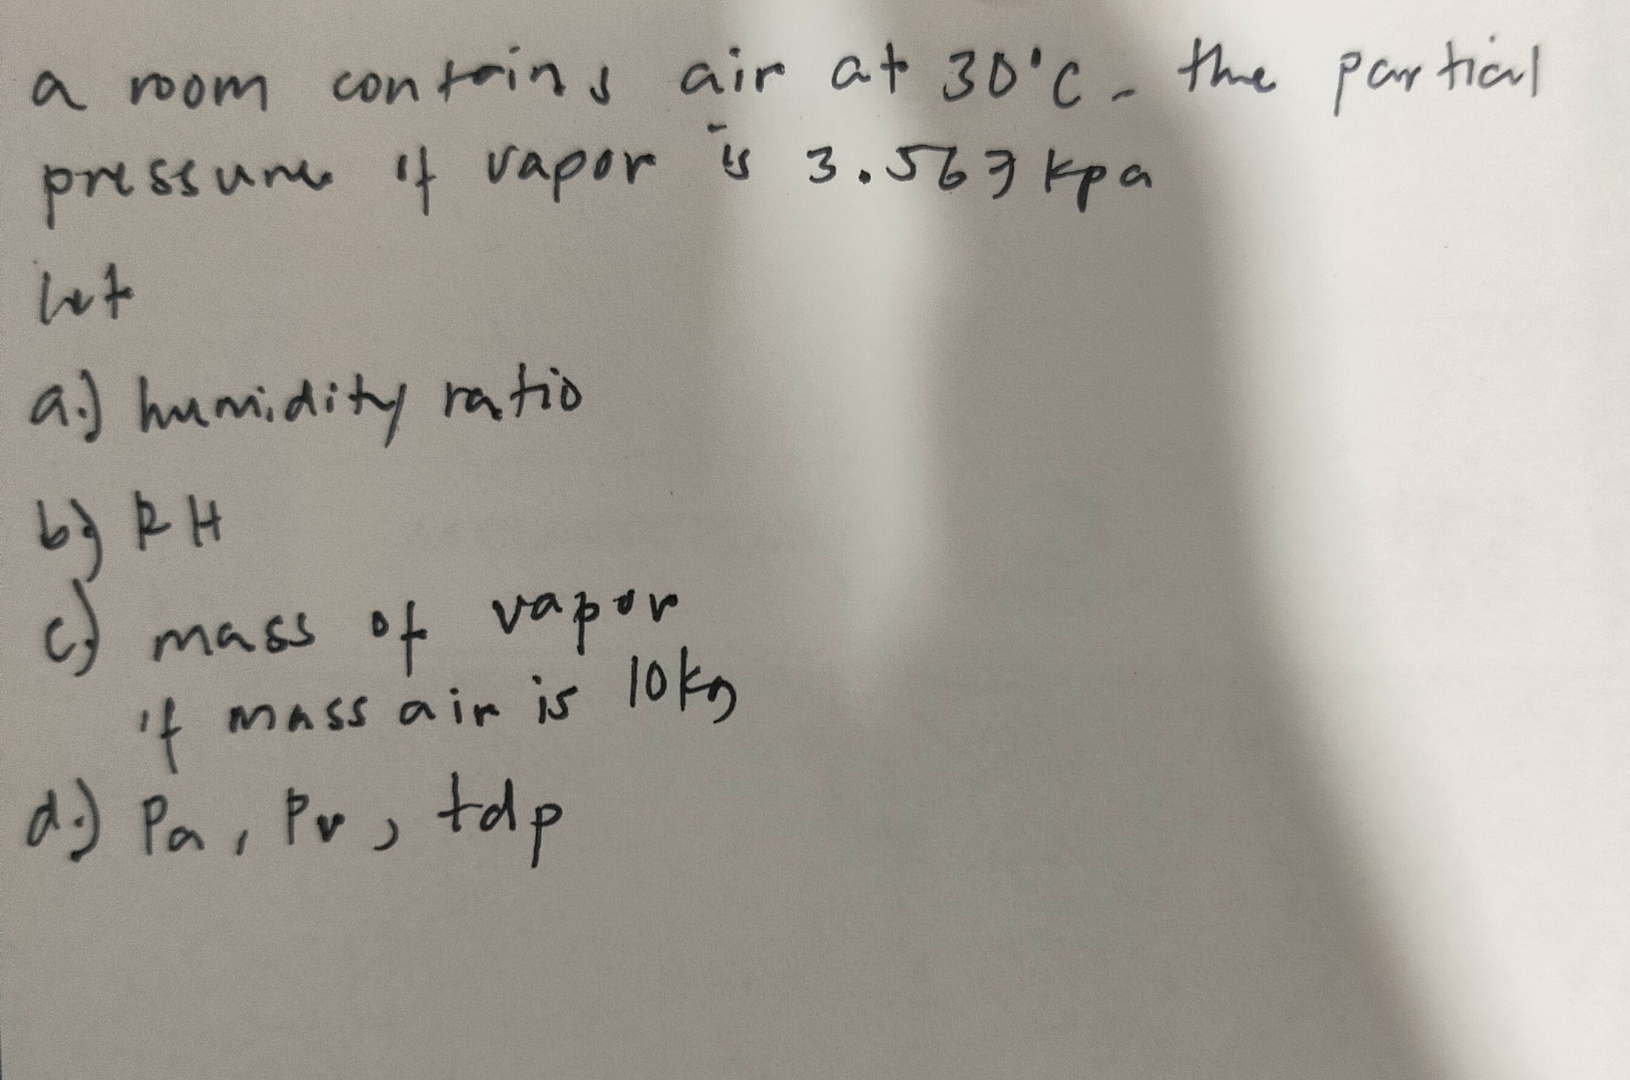 a room contains air at 30°C - the partial
pressure if vapor is 3.567 kpa
let
a.) humidity ratio
b) RH
c.) mass of vapor
if mass air is 10kg
d.) Pa, Pv, tdp